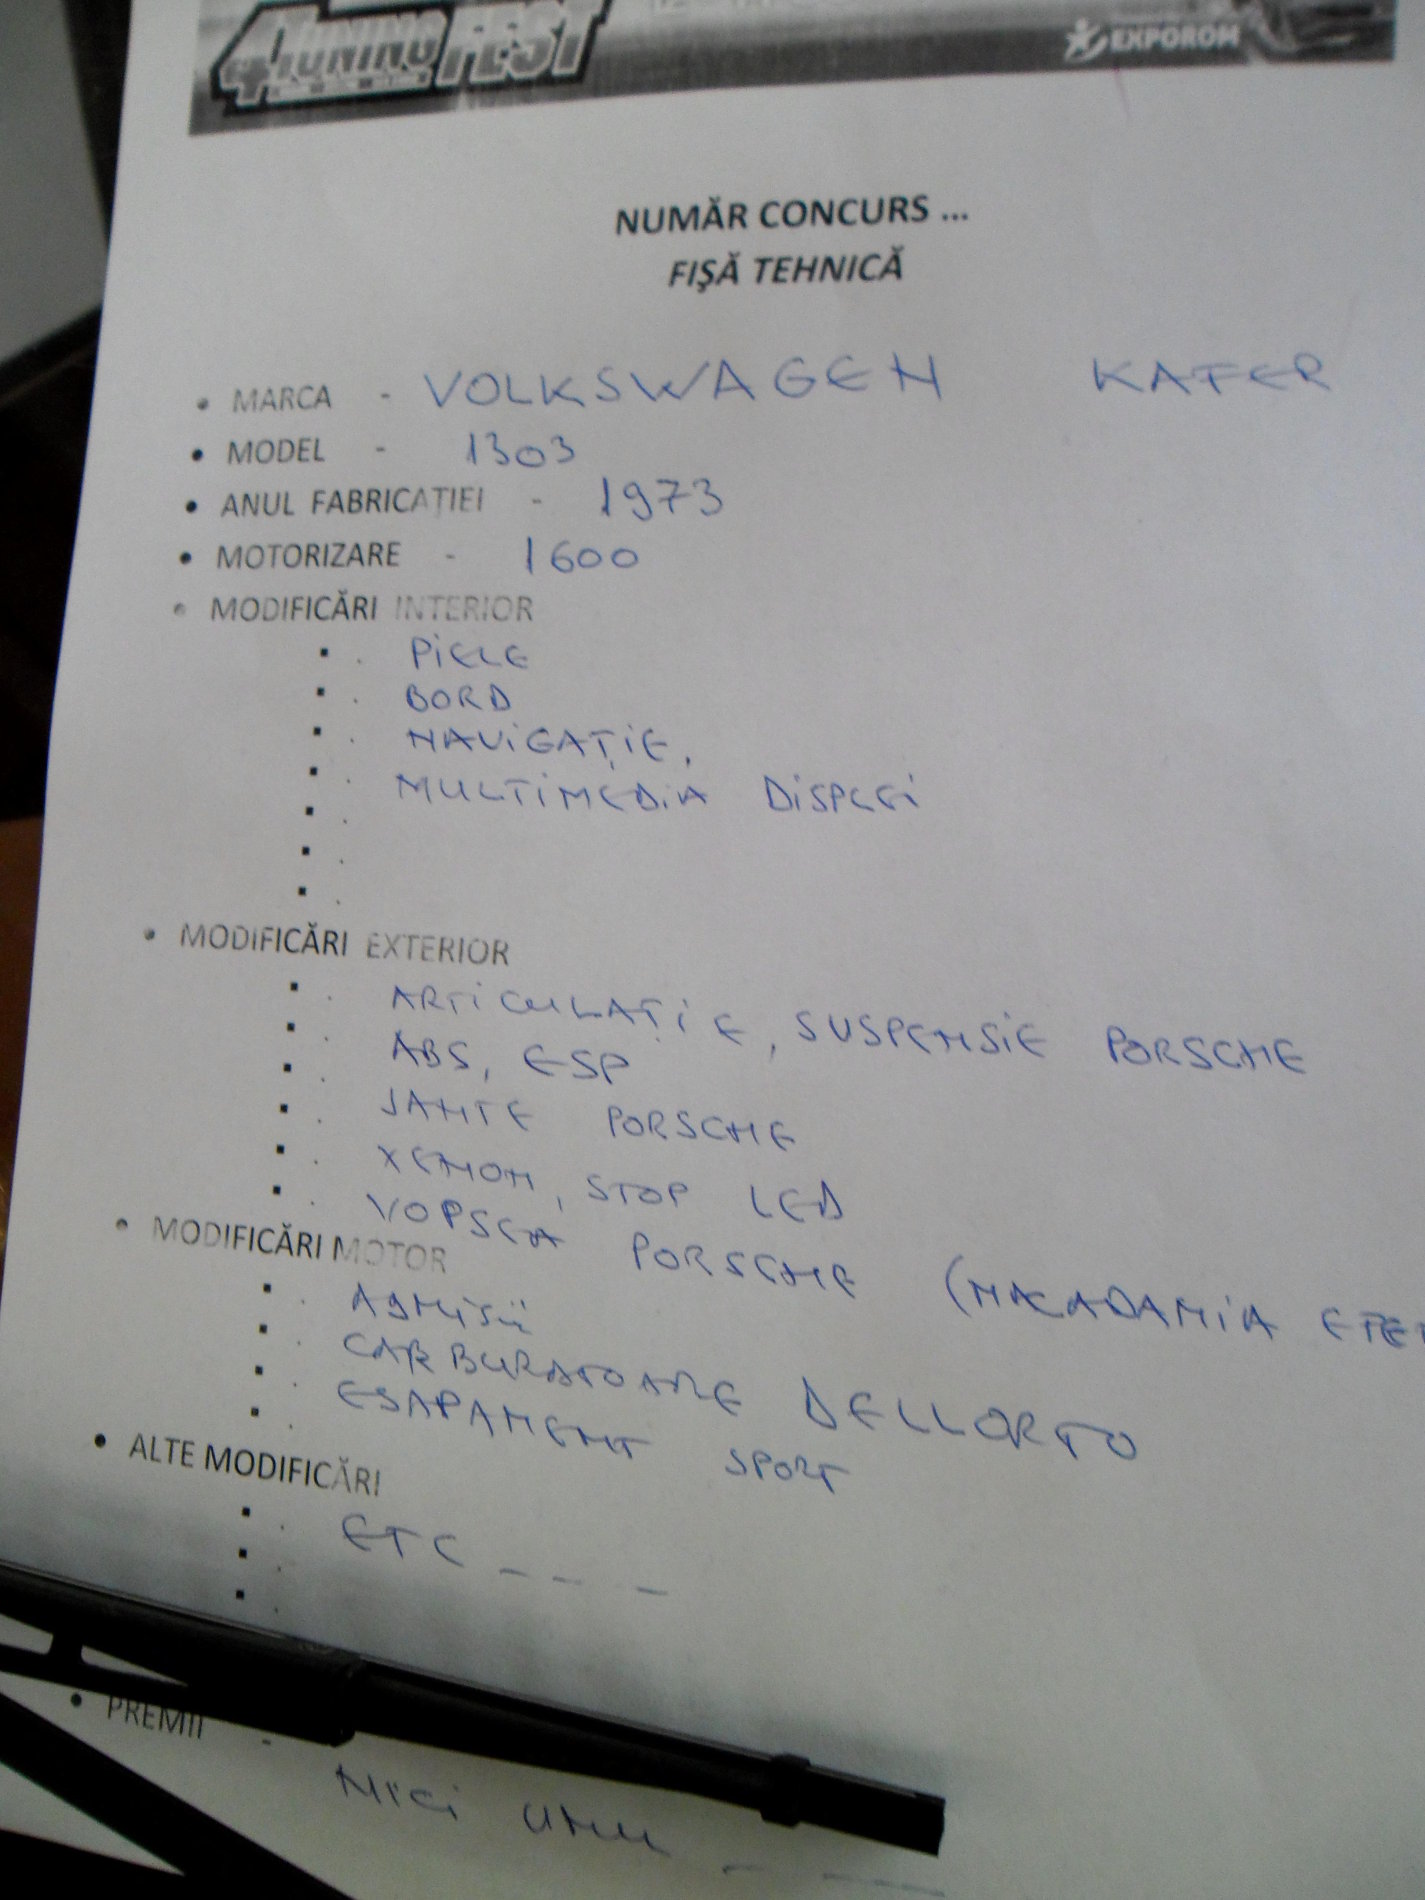 4TUNING FEST
EXPOROM
NUMĂR CONCURS ...
FIŞĂ TEHNICĂ
• MARCA - VOLKSWAGEN KAFER
• MODEL - 1303
• ANUL FABRICAŢIEI - 1973
• MOTORIZARE - 1600
• MODIFICĂRI INTERIOR
PIELE
BORD
NAVIGAŢIE,
MULTIMEDIA DISPLEI
• MODIFICĂRI EXTERIOR
ARTICULAŢIE, SUSPENSIE PORSCHE
ABS, ESP
JANTE PORSCHE
XENON, STOP LED
VOPSEA PORSCHE (MACADAMIA
• MODIFICĂRI MOTOR
ADMISII
CARBURATOARE DELLORTO
ESAPAMENT SPORT
• ALTE MODIFICĂRI
ETC _ _ _
• PREMII -
NICI UNU _ _